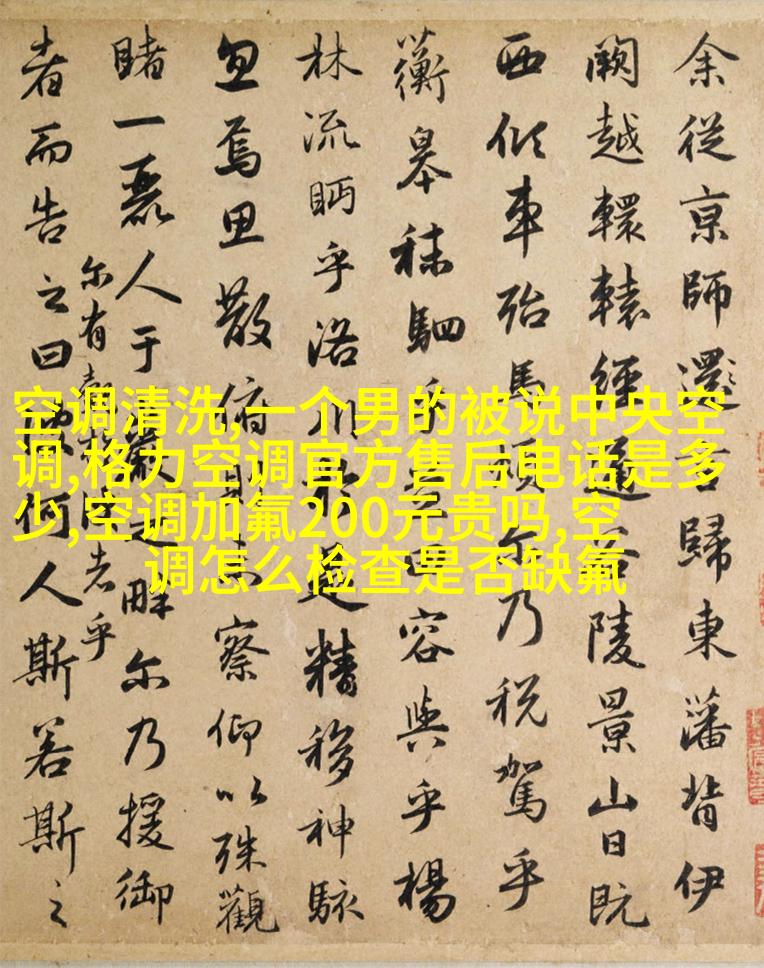 余從京師還言歸東藩背伊
闕越轘轅經通谷陵景山日既
西傾車殆馬煩尔乃税駕乎
蘅皋秣駟乎芝田容與乎楊
林流眄乎洛川於是精移神駭
忽焉思散俯則未察仰以殊觀
睹一麗人于巖之畔尔乃援御
尔有者乎
者而告之曰何人斯若斯之
空调清洗,一个男的被说中央空
调,格力空调官方售后电话是多
少,空调加氟200元贵吗,空
调怎么检查是否缺氟